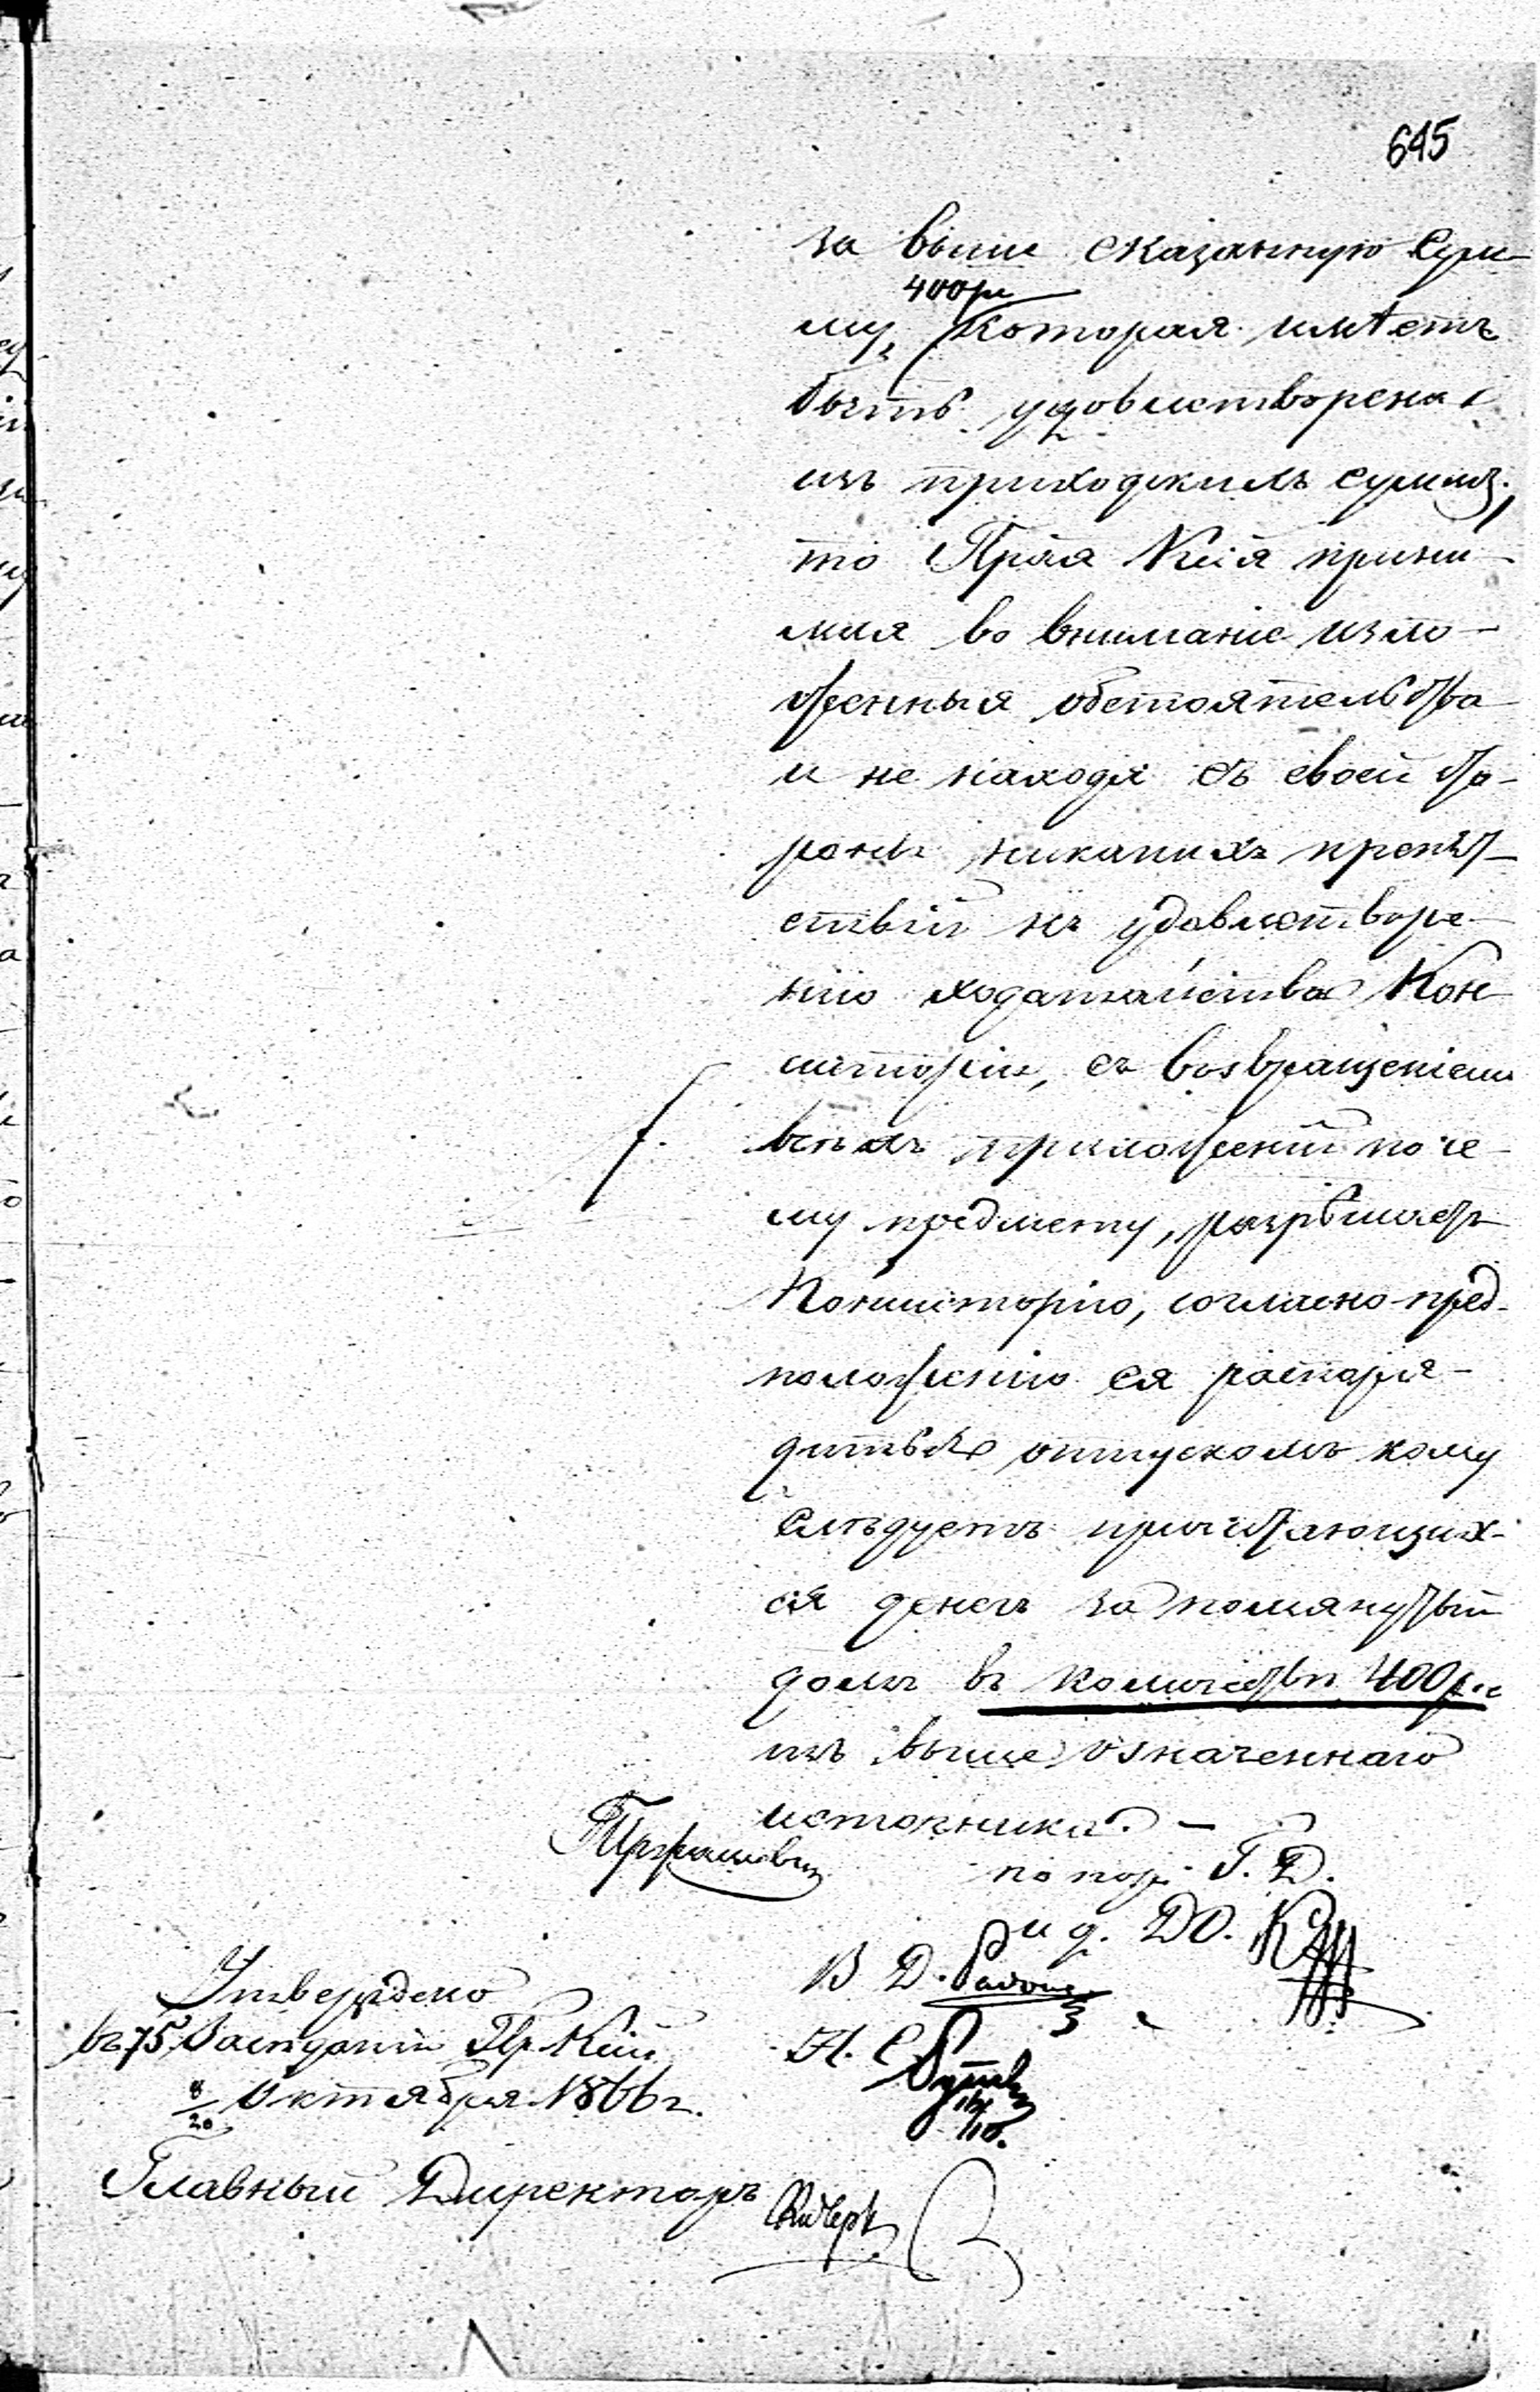 645
за выше сказанную сум-
400 р
му, которая имѣетъ
быть удовлетворена
изъ приходскихъ суммъ,
то Прая Кія прини-
мая во вниманіе изло-
женныя обстоятельства
и не находя съ своей сто-
роны никакихъ препят-
ствій къ удовлетворе-
нію ходатайства Кон-
систоріи, съ возвращеніемъ
всѣхъ приложеній по се-
му предмету, разрѣшаетъ
Консисторію, согласно пред-
положенію ея распоря-
диться отпускомъ кому
слѣдуетъ причитающих-
ся денегъ за помянутый
домъ въ количествѣ 400 р.
изъ выше означеннаго
источника. —
по пор. Г. Д.
и д. Д О.
В Д.
Н. С.
Утверждено
въ 75 Засѣданіи Пр. Кіи
8/20 Октября 1866 г.
Главный Директоръ